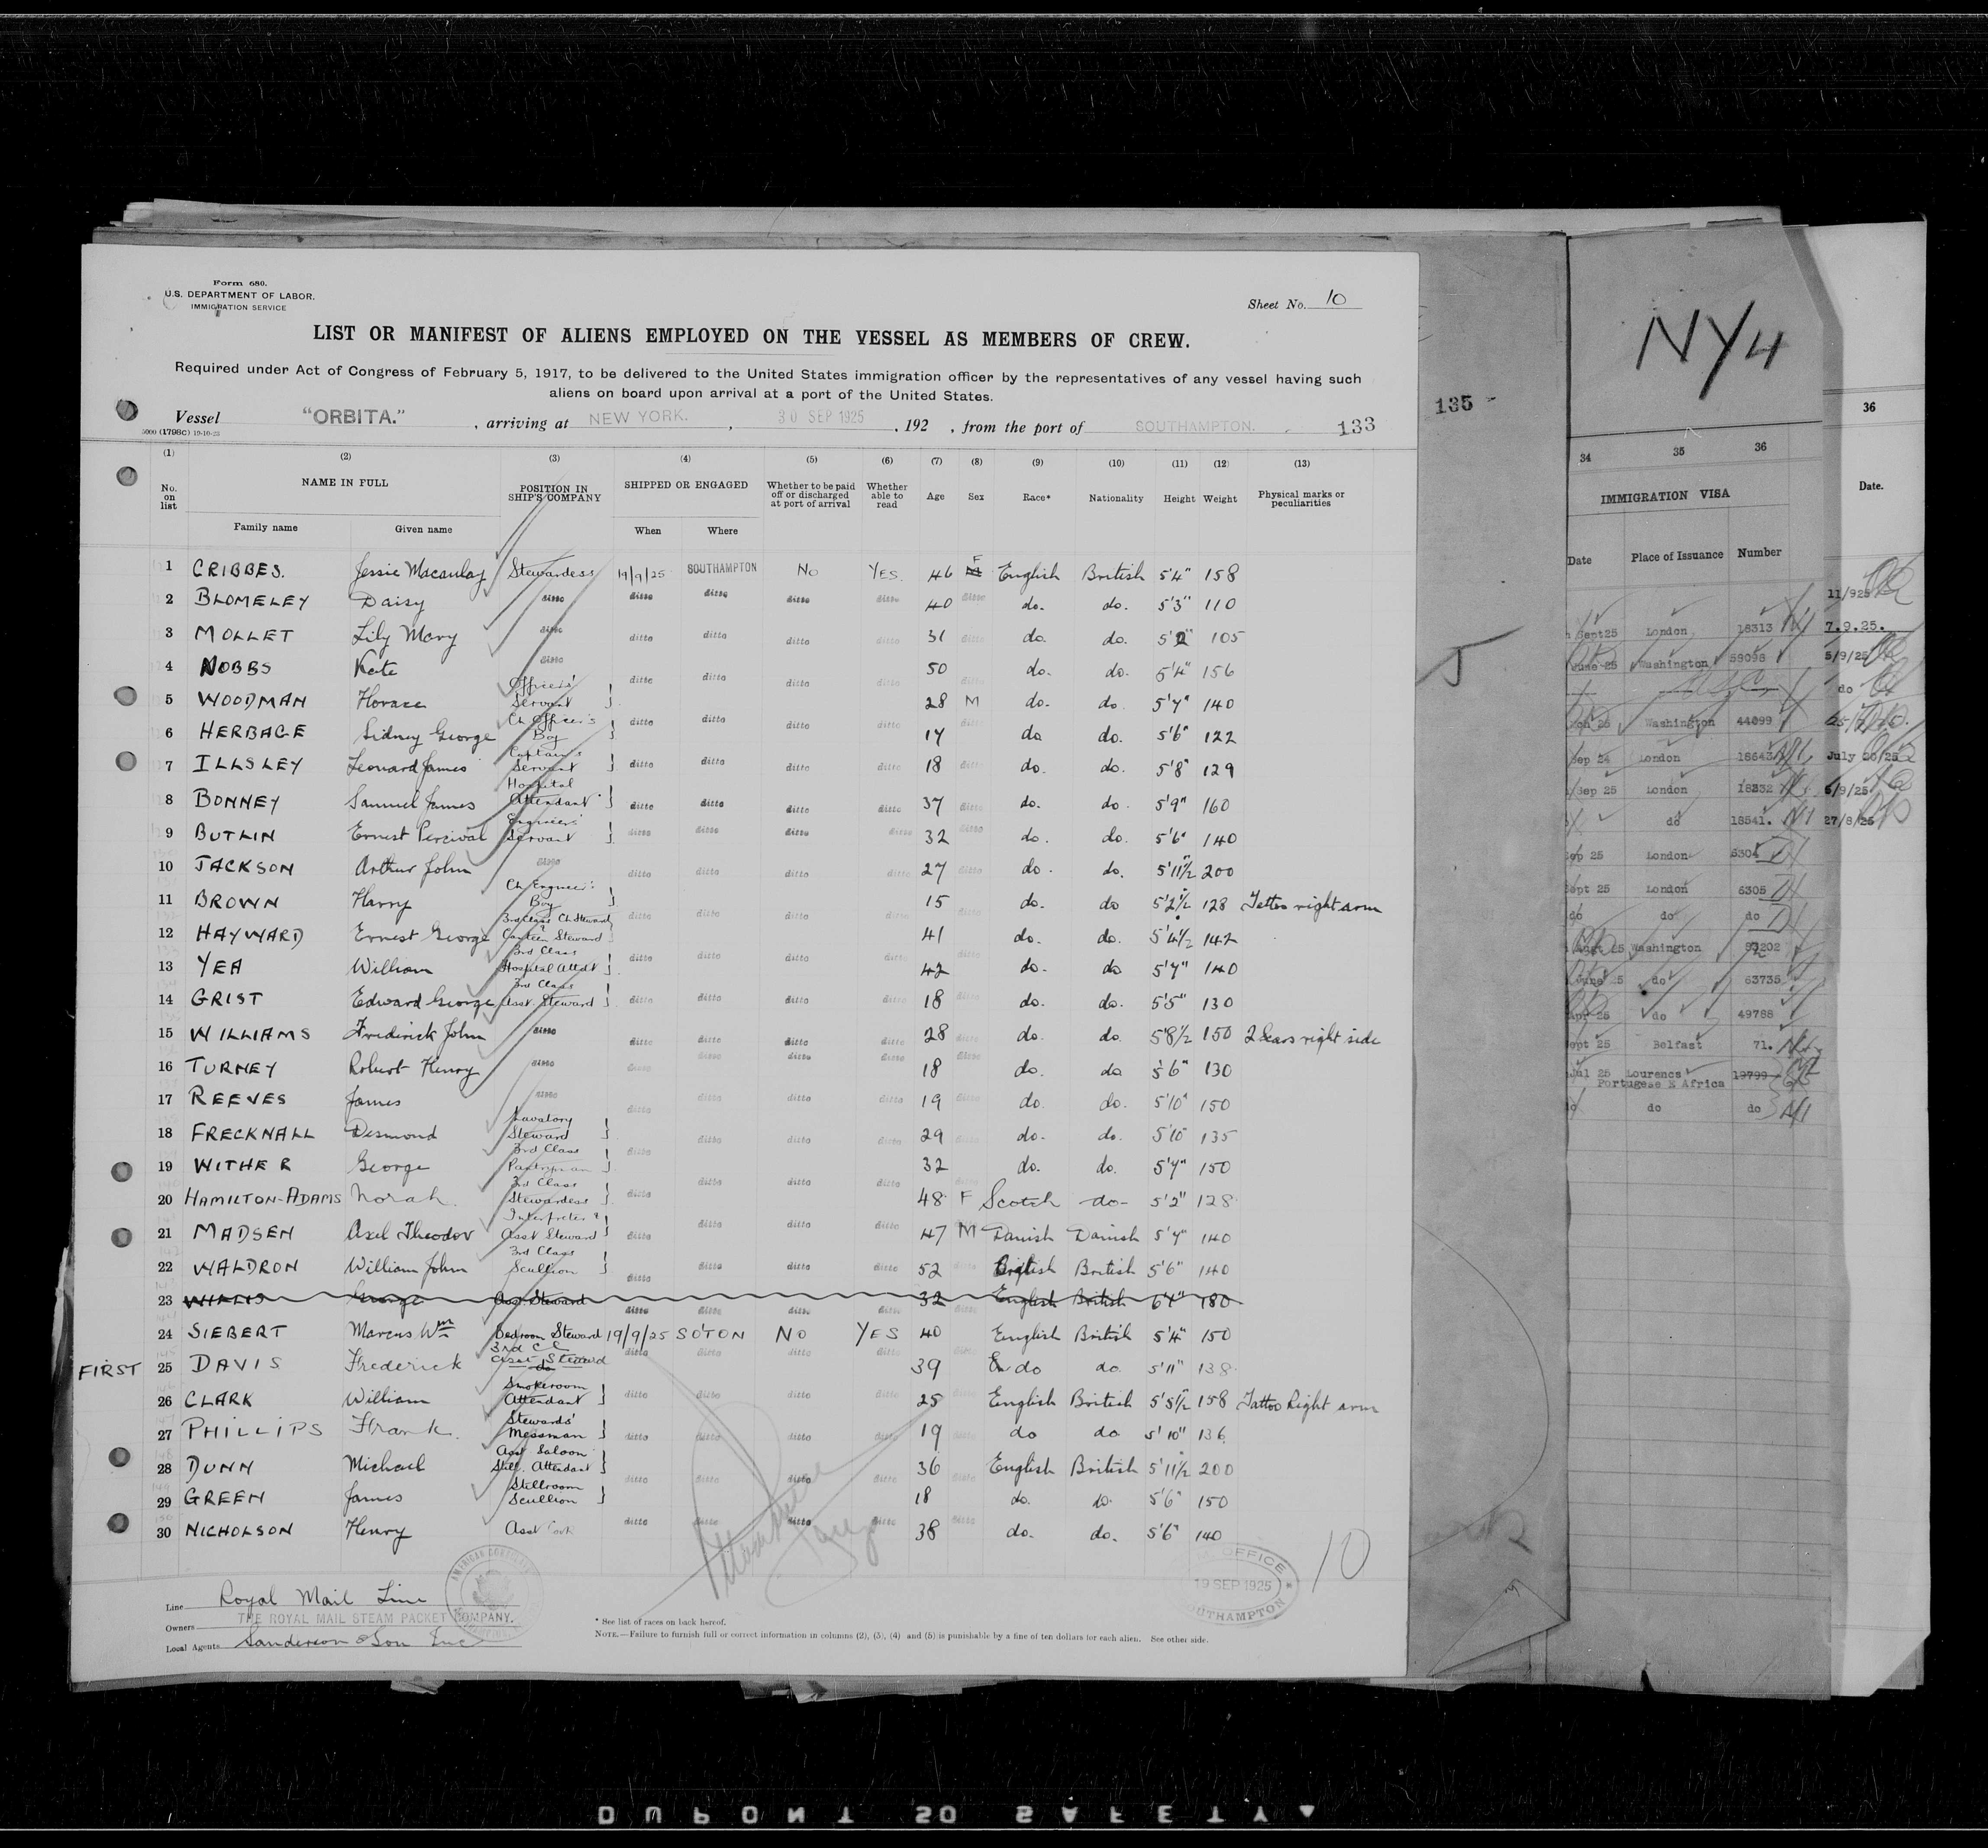 Form 680.
U.S. DEPARTMENT OF LABOR.
IMMIGRATION SERVICE
Sheet No. 10
LIST OR MANIFEST OF ALIENS EMPLOYED ON THE VESSEL AS MEMBERS OF CREW.
Required under Act of Congress of February 5, 1917, to be delivered to the United States immigration officer by the representatives of any vessel having such
aliens on board upon arrival at a port of the United States.
Vessel "ORBITA." , arriving at NEW YORK. , 30 SEP 1925 , 192 , from the port of SOUTHAMPTON. 133
5000 (1798c) 19-10-23
(1) (2) (3) (4) (5) (6) (7) (8) (9) (10) (11) (12) (13)
No. on list NAME IN FULL POSITION IN SHIP'S COMPANY SHIPPED OR ENGAGED Whether to be paid off or discharged at port of arrival Whether able to read Age Sex Race* Nationality Height Weight Physical marks or peculiarities
Family name Given name When Where
1 CRIBBES. Jessie Macaulay Stewardess 19/9/25 SOUTHAMPTON No YES. 46 F English British 5'4" 158
2 BLOMELEY Daisy ditto ditto ditto ditto ditto 40 ditto do. do. 5'3" 110
3 MOLLET Lily Mary ditto ditto ditto ditto ditto 31 ditto do. do. 5'2" 105
4 NOBBS Kate ditto ditto ditto ditto ditto 50 ditto do. do. 5'4" 156
5 WOODMAN Horace Officers' Servant 28 M do. do. 5'7" 140
6 HERBAGE Sidney George Ch Officer's Boy ditto ditto ditto ditto 17 ditto do do. 5'6" 122
7 ILLSLEY Leonard James Captain's Servant ditto ditto ditto ditto 18 ditto do. do. 5'8" 129
8 BONNEY Samuel James Hospital Attendant ditto ditto ditto ditto 37 ditto do. do. 5'9" 160
9 BUTLIN Ernest Percival Engineers' Servant ditto ditto ditto ditto 32 ditto do. do. 5'6" 140
10 JACKSON Arthur John ditto ditto ditto ditto ditto 27 ditto do. do. 5'11½" 200
11 BROWN Harry Ch Engineer's Boy 15 do. do 5'2½" 128 Tattoo right arm
12 HAYWARD Ernest George 3rd Class Ch. Steward Canteen Steward ditto ditto ditto ditto 41 ditto do. do. 5'4½ 142
13 YEA William 3rd Class Hospital Attdt ditto ditto ditto ditto 42 ditto do. do 5'7" 140
14 GRIST Edward George 3rd Class Asst. Steward ditto ditto ditto ditto 18 ditto do. do. 5'5" 130
15 WILLIAMS Frederick John ditto ditto ditto ditto ditto 28 ditto do. do. 5'8½ 150 2 Scars right side
16 TURNEY Robert Henry ditto ditto ditto ditto ditto 18 ditto do. do 5'6" 130
17 REEVES James ditto ditto ditto ditto ditto 19 ditto do. do. 5'10" 150
18 FRECKNALL Desmond Lavatory Steward ditto ditto ditto ditto 29 ditto do. do. 5'10 135
19 WITHER George 3rd Class Pantryman 32 do. do. 5'7" 150
20 HAMILTON-ADAMS Norah. 3rd Class Stewardess ditto ditto ditto ditto 48 F Scotch do 5'2" 128
21 MADSEN Axel Theodor Interpreter & Asst Steward ditto ditto ditto 47 M Danish Danish 5'7" 140
22 WALDRON William John 3rd Class Scullion ditto ditto ditto ditto 52 ditto British 5'6" 140
23 WILLIS George Asst Steward ditto ditto ditto ditto 32 ditto English British 6'1" 180
24 SIEBERT Marcus Wm Bedroom Steward 19/9/25 SO'TON NO YES 40 English British 5'4" 150
FIRST 25 DAVIS Frederick 3rd Cl Asst Steward ditto ditto ditto ditto 39 ditto do do. 5'11" 138
26 CLARK William Smokeroom Attendant ditto ditto ditto ditto 25 ditto English British 5'5½" 158 Tattoo Right arm
27 PHILLIPS Frank. Stewards' Messman ditto ditto ditto ditto 19 ditto do do 5'10" 136
28 DUNN Michael Asst Saloon Still. Attendant ditto ditto ditto ditto 36 ditto English British 5'11½" 200
29 GREEN James Stillroom Scullion 18 do. do. 5'6" 150
30 NICHOLSON Henry Asst Cook ditto ditto ditto ditto 38 ditto do. do. 5'6" 140
10
Line Royal Mail Line
Owners THE ROYAL MAIL STEAM PACKET COMPANY.
Local Agents Sanderson & Son Inc
* See list of races on back hereof.
NOTE.—Failure to furnish full or correct information in columns (2), (3), (4) and (5) is punishable by a fine of ten dollars for each alien. See other side.
OFFICE
19 SEP 1925
SOUTHAMPTON
135
NY4
34 35 36
IMMIGRATION VISA
Date Place of Issuance Number
Sept 25 London 18313
June 25 Washington 58098
25 Washington 44099
Sep 24 London 18643
Sep 25 London 18332
do 18541.
Sep 25 London 6304
Sept 25 London 6305
do do do
Augt 25 Washington 63202
June 25 do 63735
Apr 25 do 49788
Sept 25 Belfast 71.
Jul 25 Lourencs 19799
Portugese E Africa
do do
36
Date.
11/925
7.9.25.
5/9/25
do
July 20/25
6/9/25
27/8/25
DUPONT SO SAFETY